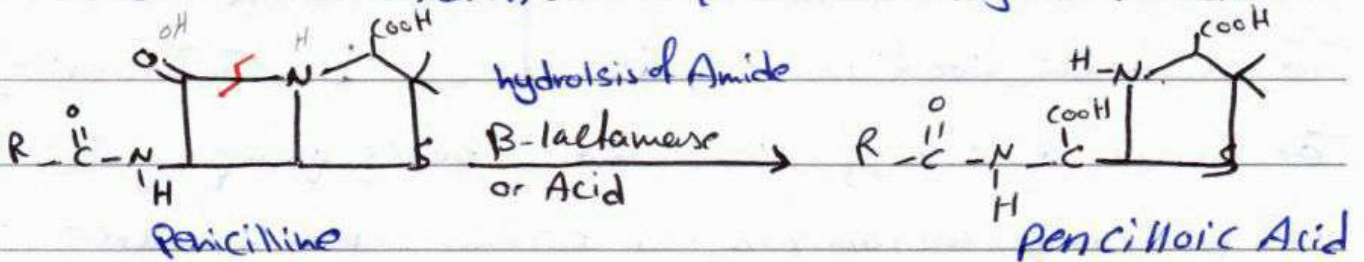 OH H COOH
O N
hydrolsis of Amide
H-N COOH
R-C-N S β-lactamase R-C-N-C S
O O COOH
H or Acid H
Penicilline pencilloic Acid